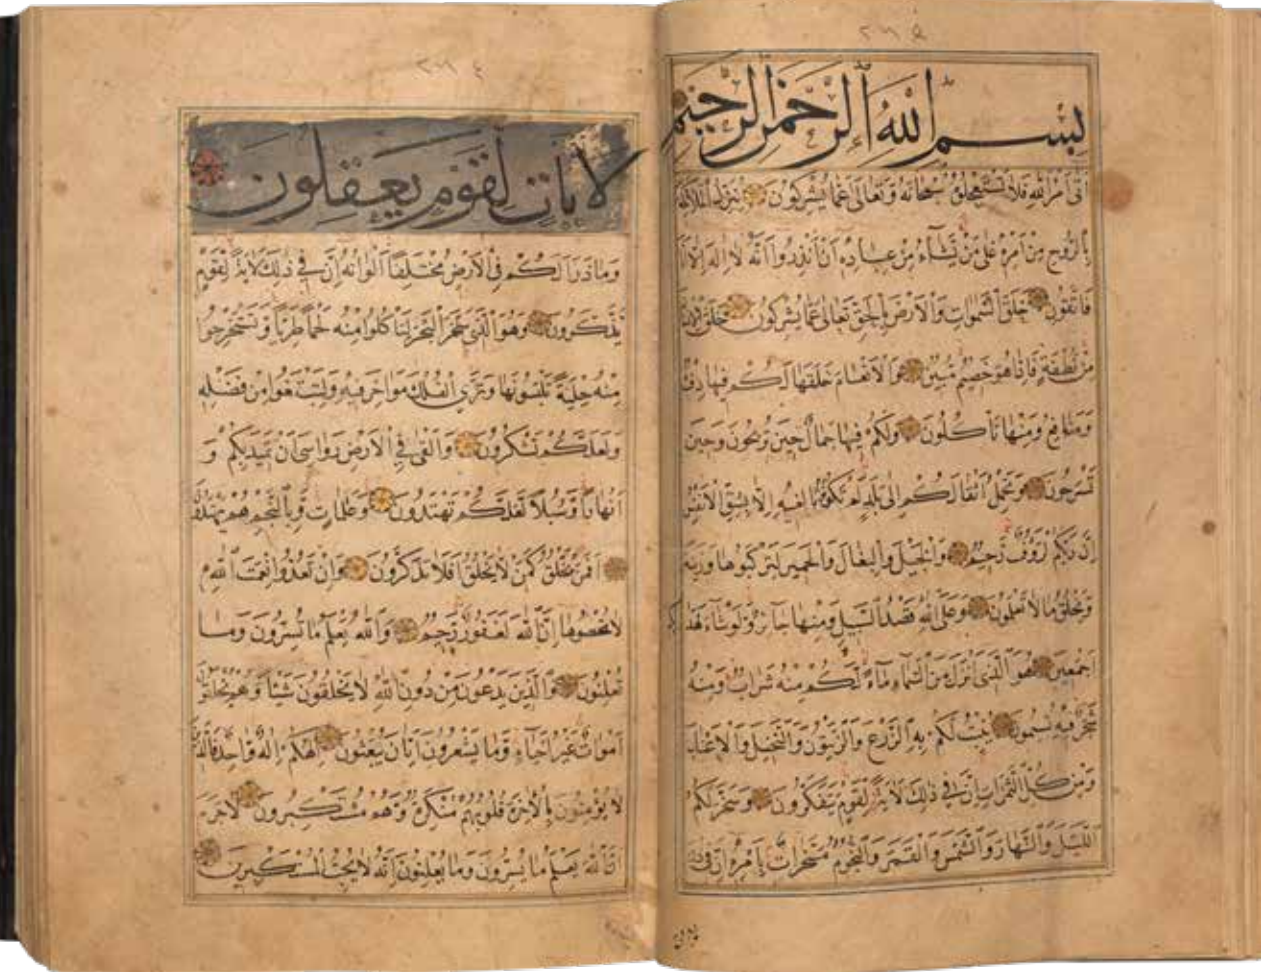 بِسْمِ اللَّهِ الرَّحْمَٰنِ الرَّحِيمِ
أَتَىٰ أَمْرُ اللَّهِ فَلَا تَسْتَعْجِلُوهُ سُبْحَانَهُ وَتَعَالَىٰ عَمَّا يُشْرِكُونَ يُنَزِّلُ الْمَلَائِكَةَ
بِالرُّوحِ مِنْ أَمْرِهِ عَلَىٰ مَنْ يَشَاءُ مِنْ عِبَادِهِ أَنْ أَنْذِرُوا أَنَّهُ لَا إِلَٰهَ إِلَّا أَنَا
فَاتَّقُونِ خَلَقَ السَّمَٰوَاتِ وَالْأَرْضَ بِالْحَقِّ تَعَالَىٰ عَمَّا يُشْرِكُونَ خَلَقَ الْإِنْسَانَ
مِنْ نُطْفَةٍ فَإِذَا هُوَ خَصِيمٌ مُبِينٌ وَالْأَنْعَامَ خَلَقَهَا لَكُمْ فِيهَا دِفْءٌ
وَمَنَافِعُ وَمِنْهَا تَأْكُلُونَ وَلَكُمْ فِيهَا جَمَالٌ حِينَ تُرِيحُونَ وَحِينَ
تَسْرَحُونَ وَتَحْمِلُ أَثْقَالَكُمْ إِلَىٰ بَلَدٍ لَمْ تَكُونُوا بَالِغِيهِ إِلَّا بِشِقِّ الْأَنْفُسِ
إِنَّ رَبَّكُمْ لَرَءُوفٌ رَحِيمٌ وَالْخَيْلَ وَالْبِغَالَ وَالْحَمِيرَ لِتَرْكَبُوهَا وَزِينَةً
وَيَخْلُقُ مَا لَا تَعْلَمُونَ وَعَلَى اللَّهِ قَصْدُ السَّبِيلِ وَمِنْهَا جَائِرٌ وَلَوْ شَاءَ لَهَدَاكُمْ
أَجْمَعِينَ هُوَ الَّذِي أَنْزَلَ مِنَ السَّمَاءِ مَاءً لَكُمْ مِنْهُ شَرَابٌ وَمِنْهُ
شَجَرٌ فِيهِ تُسِيمُونَ يُنْبِتُ لَكُمْ بِهِ الزَّرْعَ وَالزَّيْتُونَ وَالنَّخِيلَ وَالْأَعْنَابَ
وَمِنْ كُلِّ الثَّمَرَاتِ إِنَّ فِي ذَٰلِكَ لَآيَةً لِقَوْمٍ يَتَفَكَّرُونَ وَسَخَّرَ لَكُمُ
اللَّيْلَ وَالنَّهَارَ وَالشَّمْسَ وَالْقَمَرَ وَالنُّجُومُ مُسَخَّرَاتٌ بِأَمْرِهِ إِنَّ فِي ذَٰلِكَ
لَآيَاتٍ لِقَوْمٍ يَعْقِلُونَ
وَمَا ذَرَأَ لَكُمْ فِي الْأَرْضِ مُخْتَلِفًا أَلْوَانُهُ إِنَّ فِي ذَٰلِكَ لَآيَةً لِقَوْمٍ
يَذَّكَّرُونَ وَهُوَ الَّذِي سَخَّرَ الْبَحْرَ لِتَأْكُلُوا مِنْهُ لَحْمًا طَرِيًّا وَتَسْتَخْرِجُوا
مِنْهُ حِلْيَةً تَلْبَسُونَهَا وَتَرَى الْفُلْكَ مَوَاخِرَ فِيهِ وَلِتَبْتَغُوا مِنْ فَضْلِهِ
وَلَعَلَّكُمْ تَشْكُرُونَ وَأَلْقَىٰ فِي الْأَرْضِ رَوَاسِيَ أَنْ تَمِيدَ بِكُمْ وَ
أَنْهَارًا وَسُبُلًا لَعَلَّكُمْ تَهْتَدُونَ وَعَلَامَاتٍ وَبِالنَّجْمِ هُمْ يَهْتَدُونَ
أَفَمَنْ يَخْلُقُ كَمَنْ لَا يَخْلُقُ أَفَلَا تَذَكَّرُونَ وَإِنْ تَعُدُّوا نِعْمَتَ اللَّهِ
لَا تُحْصُوهَا إِنَّ اللَّهَ لَغَفُورٌ رَحِيمٌ وَاللَّهُ يَعْلَمُ مَا تُسِرُّونَ وَمَا
تُعْلِنُونَ وَالَّذِينَ يَدْعُونَ مِنْ دُونِ اللَّهِ لَا يَخْلُقُونَ شَيْئًا وَهُمْ يُخْلَقُونَ
أَمْوَاتٌ غَيْرُ أَحْيَاءٍ وَمَا يَشْعُرُونَ أَيَّانَ يُبْعَثُونَ إِلَٰهُكُمْ إِلَٰهٌ وَاحِدٌ فَالَّذِينَ
لَا يُؤْمِنُونَ بِالْآخِرَةِ قُلُوبُهُمْ مُنْكِرَةٌ وَهُمْ مُسْتَكْبِرُونَ لَا جَرَمَ
أَنَّ اللَّهَ يَعْلَمُ مَا يُسِرُّونَ وَمَا يُعْلِنُونَ إِنَّهُ لَا يُحِبُّ الْمُسْتَكْبِرِينَ